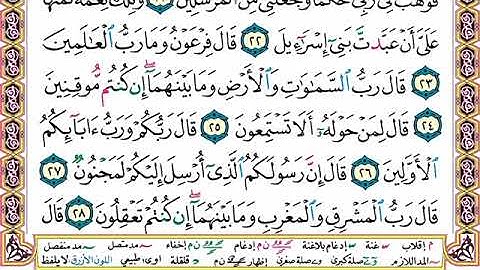 فَوَهَبَ لِي رَبِّي حُكْمًا وَجَعَلَنِي مِنَ الْمُرْسَلِينَ ٢١ وَتِلْكَ نِعْمَةٌ تَمُنُّهَا
عَلَىَّ أَنْ عَبَّدتَّ بَنِىٓ إِسْرَٰٓءِيلَ ٢٢ قَالَ فِرْعَوْنُ وَمَا رَبُّ الْعَٰلَمِينَ
٢٣ قَالَ رَبُّ السَّمَٰوَٰتِ وَالْأَرْضِ وَمَا بَيْنَهُمَآ إِن كُنتُم مُّوقِنِينَ
٢٤ قَالَ لِمَنْ حَوْلَهُۥٓ أَلَا تَسْتَمِعُونَ ٢٥ قَالَ رَبُّكُمْ وَرَبُّ ءَابَآئِكُمُ
الْأَوَّلِينَ ٢٦ قَالَ إِنَّ رَسُولَكُمُ الَّذِىٓ أُرْسِلَ إِلَيْكُمْ لَمَجْنُونٌ ٢٧
قَالَ رَبُّ الْمَشْرِقِ وَالْمَغْرِبِ وَمَا بَيْنَهُمَآ إِن كُنتُمْ تَعْقِلُونَ ٢٨ قَالَ
م إقلاب غنة إدغام بلاغنة ن م إدغام ن م إخفاء مد متصل مد منفصل
المد اللازم صلة كبرى صلة صغرى إظهار ن م قلقلة اوى طبيعي اللون الأزرق لا يلفظ